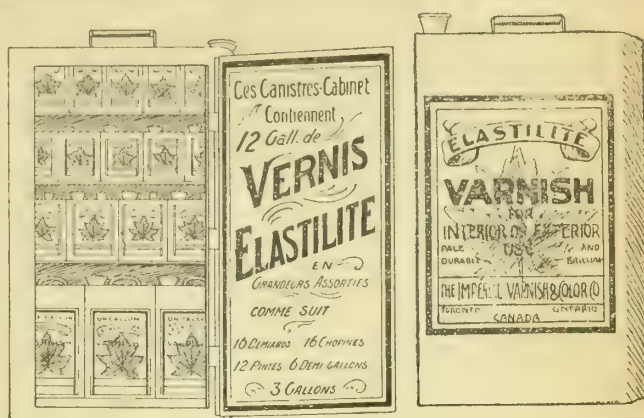 Ces Canistres-Cabinet
Contiennent
12 Gall. de
VERNIS
ELASTILITE
EN
GRANDEURS ASSORTIES
COMME SUIT
16 DEMIARDS 16 CHOPINES
12 PINTES 6 DEMI GALLONS
3 GALLONS
UN GALLON
ELASTILITE
VARNISH
FOR
INTERIOR OR EXTERIOR
USE
PALE AND
DURABLE BRILLIANT
THE IMPERIAL VARNISH & COLOR CO
TORONTO ONTARIO
CANADA